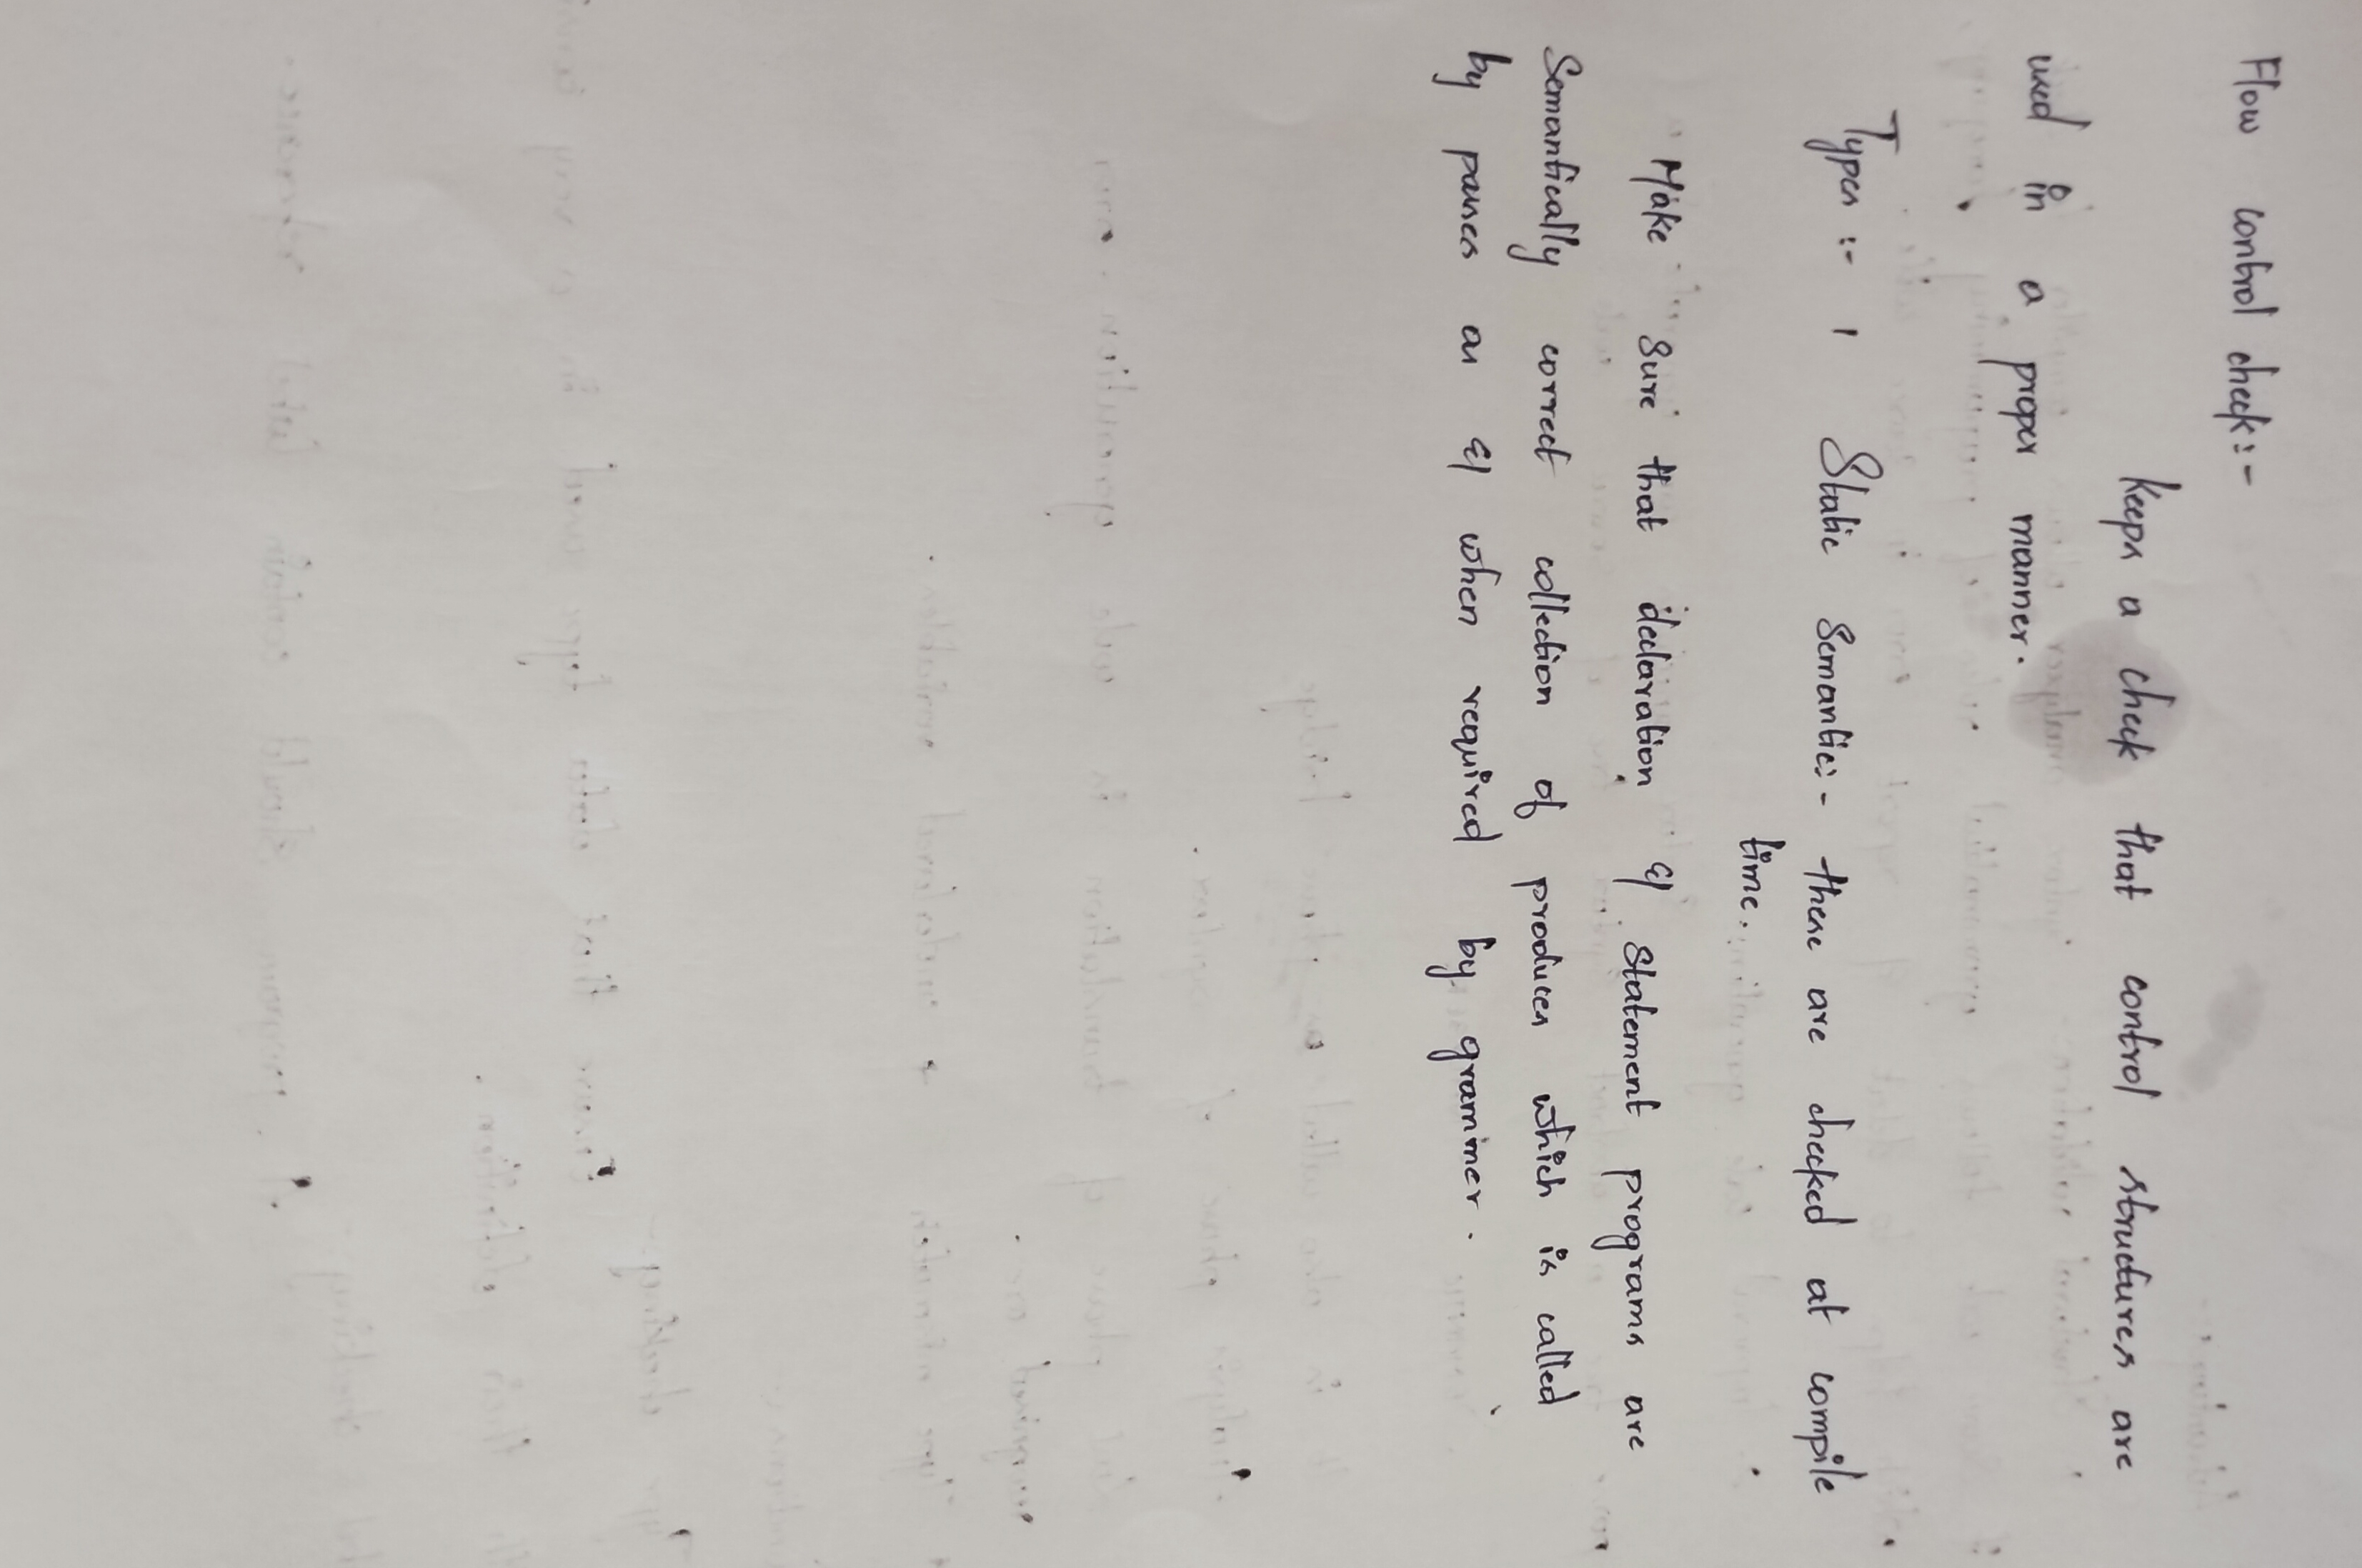 Flow control check:-
Keeps a check that control structures are
used in a proper manner.
Types :- 1 Static Semantic:- these are checked at compile
time.
Make Sure that declaration & statement programs are
Semantically correct collection of produces which is called
by passes as & when required by grammer.